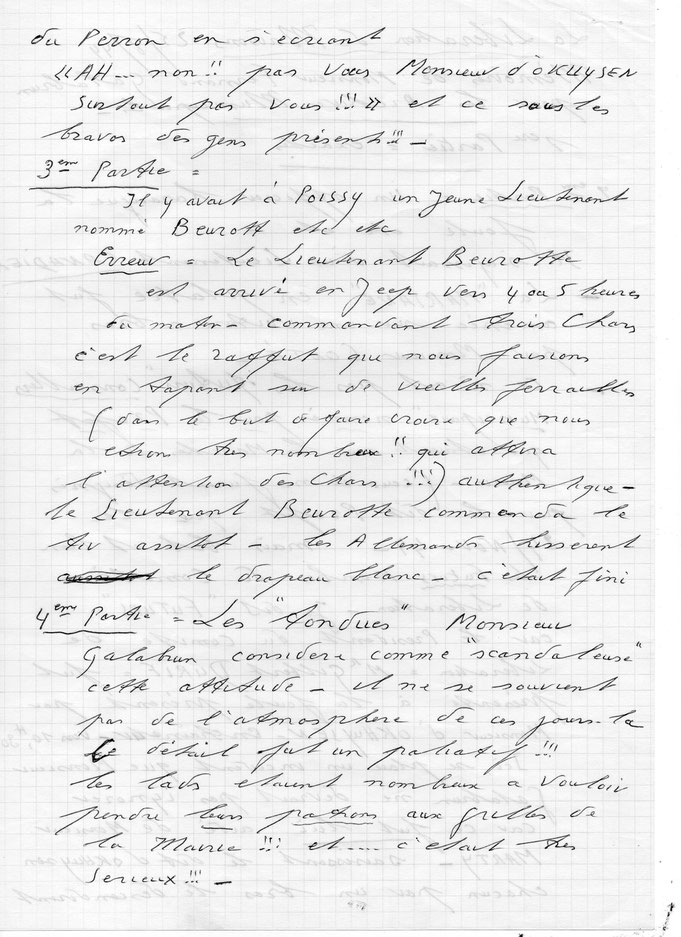 du Perron en s'ecriant
« AH... non!! pas vous Monsieur d'OKHUYSEN
surtout pas vous !!! » et ce sous les
bravos des gens présents!!! –
3em Partie =
Il y avait à Poissy un Jeune Lieutenant
nommé Beurott etc etc
Erreur = Le Lieutenant Beurotte
est arrivé en Jeep vers 4 ou 5 heures
du matin – commandant trois Chars
c'est le raffut que nous faisions
en tapant sur de vieilles ferrailles
(dans le but de faire croire que nous
etions tres nombreux!! qui attira
l'attention des Chars !!!) authentique –
le Lieutenant Beurotte commanda le
tir assitot – les Allemands hisserent
le drapeau blanc – c'était fini
4eme Partie = Les "tondues" Monsieur
Galabrun considere comme "scandaleuse"
cette attitude – il ne se souvient
pas de l'atmosphere de ces jours-la
Ce détail fut un paliatif !!!
les lads etaient nombreux a vouloir
pendre leurs patrons aux grilles de
la Mairie !!! et .... c'etait tres
serieux !!! –